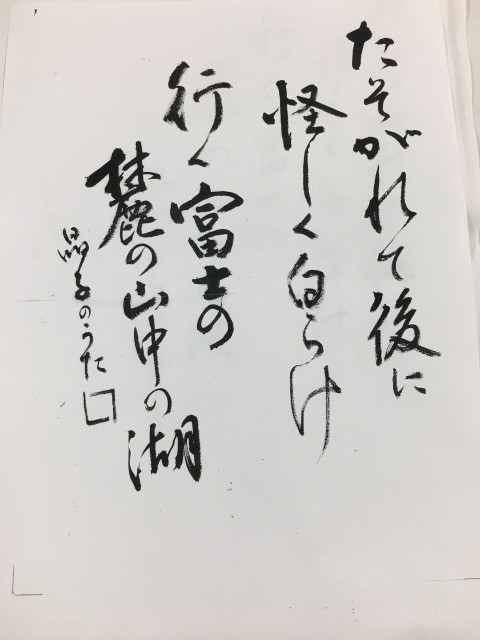 たそがれて後に
怪しく白らけ
行く富士の
麓の山中の湖
晶子のうた